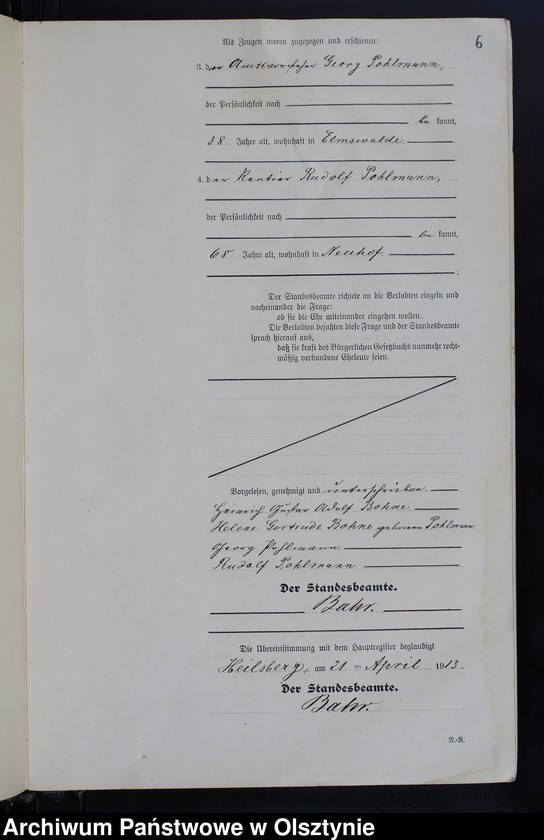 6
Als Zeugen waren zugezogen und erschienen:
3. der Amtsvorsteher Georg Pohlmann,
der Persönlichkeit nach
be kannt,
38 Jahre alt, wohnhaft in Elmswalde
4. der Rentier Rudolf Pohlmann,
der Persönlichkeit nach
be kannt,
68 Jahre alt, wohnhaft in Neuhof.
;
Der Standesbeamte richtete an die Verlobten einzeln und
nacheinander die Frage:
ob sie die Ehe miteinander eingehen wollen.
Die Verlobten bejahten diese Frage und der Standesbeamte
sprach hierauf aus,
daß sie kraft des Bürgerlichen Gesetzbuchs nunmehr recht-
mäßig verbundene Eheleute seien.
Vorgelesen, genehmigt und unterschrieben.
Heinrich Gustav Adolf Bohne
Helene Gertrude Bohne geborene Pohlmann
Georg Pohlmann
Rudolf Pohlmann
Der Standesbeamte.
Bahr.
Die Übereinstimmung mit dem Hauptregister beglaubigt
Heilsberg, am 21 ten April 1913.
Der Standesbeamte.
Bahr.
N.-R.
Archiwum Państwowe w Olsztynie